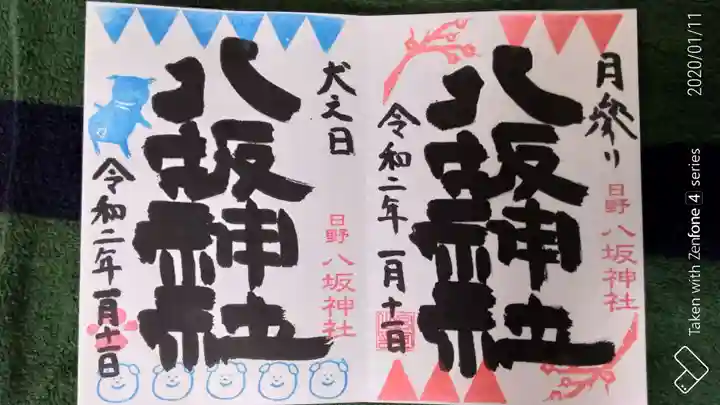 月参り
八坂神社
日野 八坂神社
令和二年 一月十一日
犬之日
八坂神社
日野 八坂神社
令和二年 一月十一日
2020/01/11
Taken with Zenfone 4 series